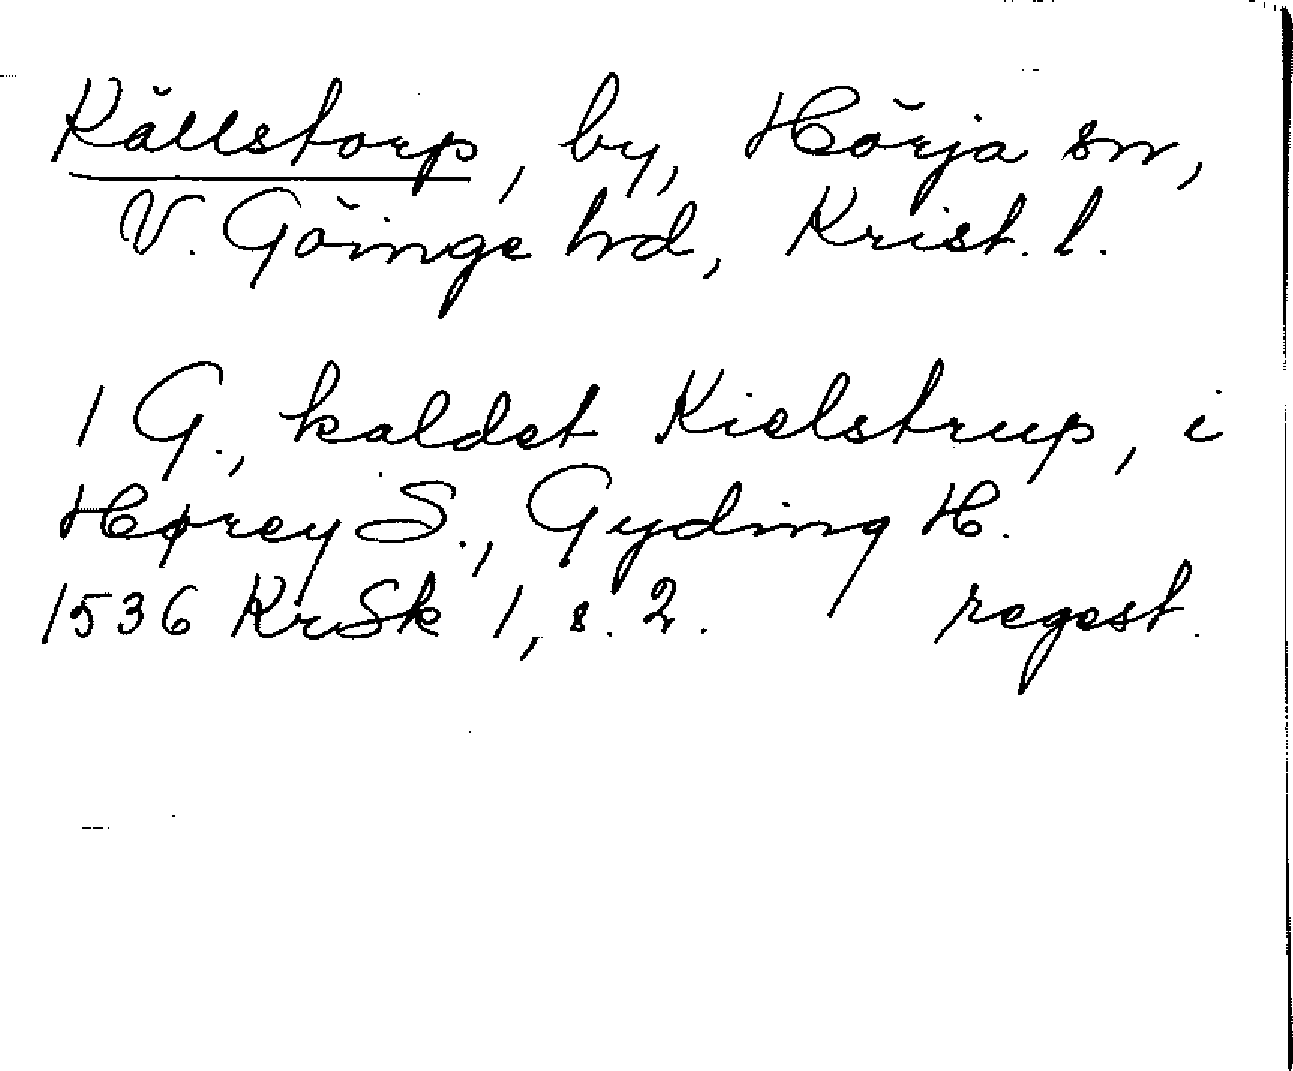 Källstorp, by, Hörja sn,
V. Göinge hd, Krist. l.
1 G., kaldet Kielstrup, i
Hørey S., Gyding H.
1536 KrSk 1, s. 2. regest.